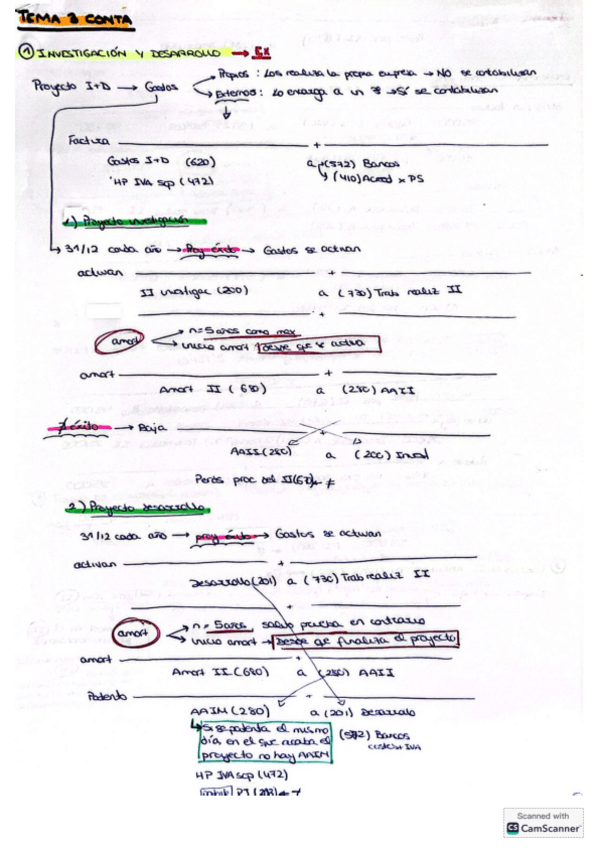 TEMA 3 CONTA
① INVESTIGACIÓN Y DESARROLLO → EX
Proyecto I+D → Gastos
Propios : Los realiza la propia empresa → NO se contabilizan
Externos : Lo encarga a un 3º → Sí se contabilizan
Factura + 
Gastos I+D (620) a (572) Bancos
HP IVA sop (472) (410) Acreed x PS
1) Proyecto investigación
31/12 cada año → Proy éxito → Gastos se activan
activan +
II investigac (200) a (730) Trab realiz II
+
amort
n=5 años como max
inicio amort desde que se activa
amort +
Amort II (680) a (280) AAII
≠ éxito → Baja
AAII (280) a (200) Inved
Perds proc del II (67) ← ≠
2) Proyecto desarrollo
31/12 cada año → proy éxito → Gastos se activan
activan +
Desarrollo (201) a (730) Trab realiz II
+
amort
n = 5 años, salvo prueba en contrario
inicio amort → Desde qe finaliza el proyecto
amort +
Amort II (680) a (280) AAII
Patento +
AAIN (280) a (201) Desarrollo
Si se patenta el mismo
día en el que acaba el
proyecto no hay AAIN
(572) Bancos
HP IVA sop (472)
PI (203) ← ≠
Scanned with
CS CamScanner